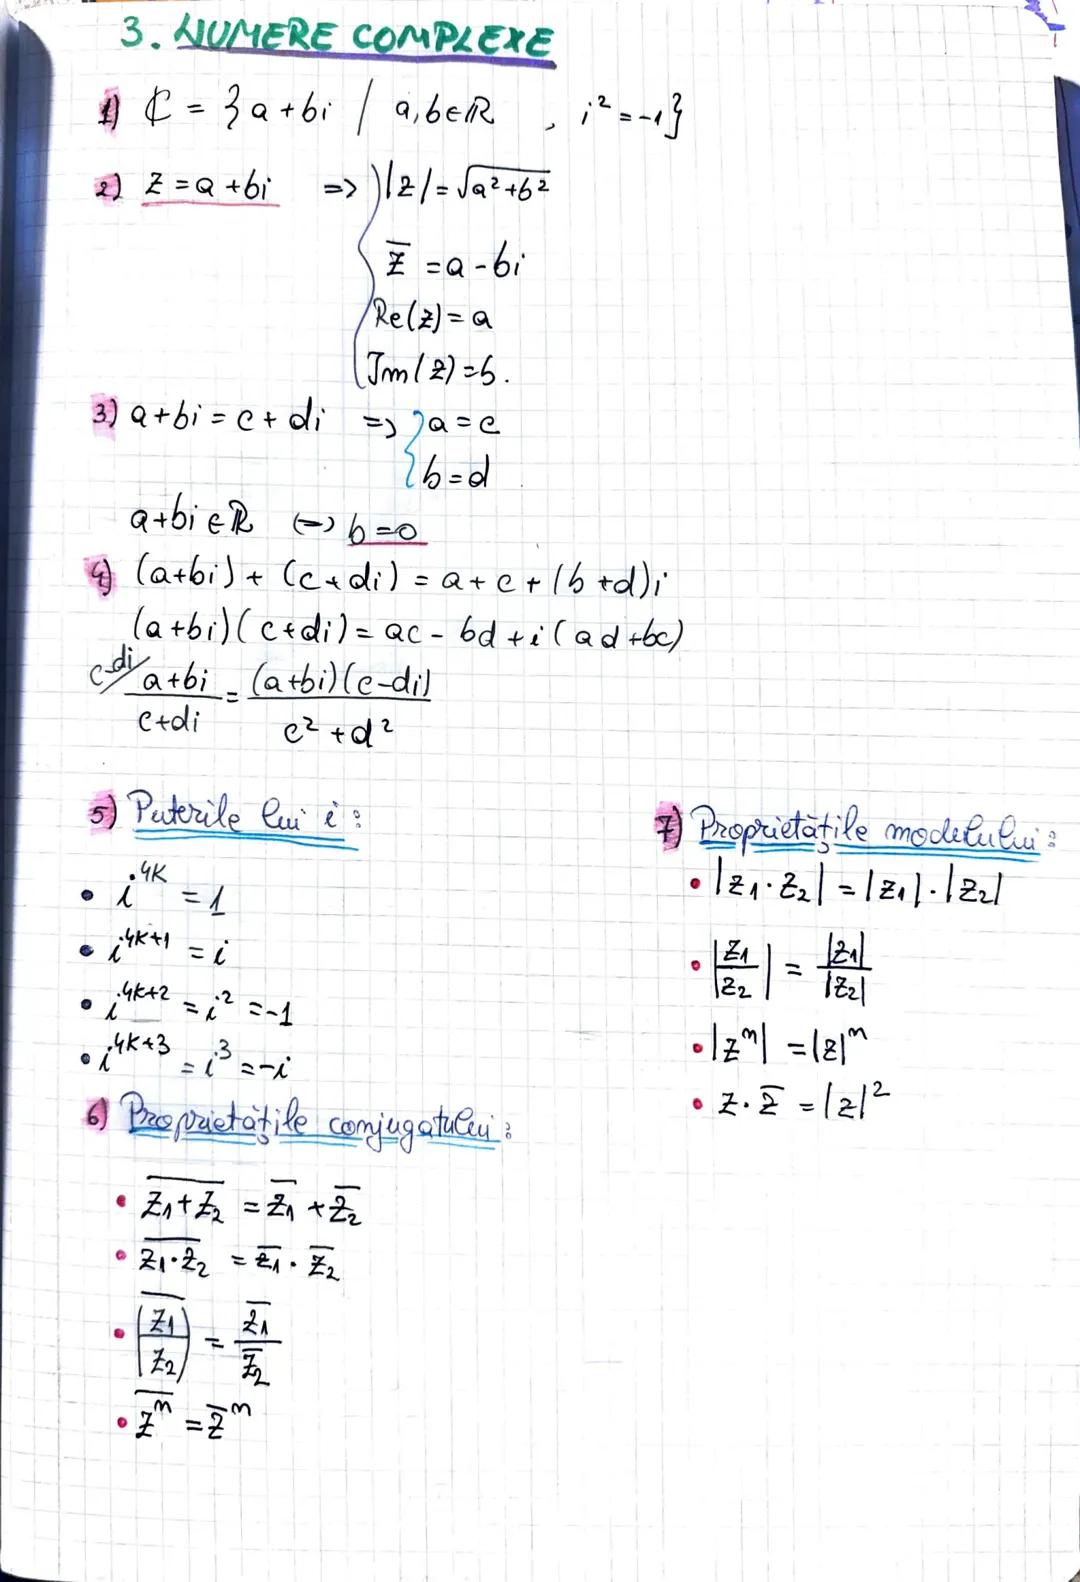 3. NUMERE COMPLEXE
1) ℂ = {a+bi / a,b∈ℝ , i² = -1}
2) z = a+bi => |z| = √(a²+b²)
z̅ = a-bi
Re(z) = a
Im(z) = b.
3) a+bi = c+di => { a=c
b=d
a+bi∈ℝ (=> b=0
4) (a+bi) + (c+di) = a+c+(b+d)i
(a+bi)(c+di) = ac - bd + i(ad+bc)
c-di/ (a+bi)/(c+di) = (a+bi)(c-di)/(c²+d²)
5) Puterile lui i:
• i^{4K} = 1
• i^{4K+1} = i
• i^{4K+2} = i² = -1
• i^{4K+3} = i³ = -i
6) Proprietățile conjugatului:
• \overline{z₁+z₂} = \overline{z₁} + \overline{z₂}
• \overline{z₁·z₂} = \overline{z₁} · \overline{z₂}
• \overline{(z₁/z₂)} = \overline{z₁}/\overline{z₂}
• \overline{z^n} = \overline{z}^n
7) Proprietățile modulului:
• |z₁·z₂| = |z₁|·|z₂|
• |z₁/z₂| = |z₁|/|z₂|
• |z^n| = |z|^n
• z·z̅ = |z|²